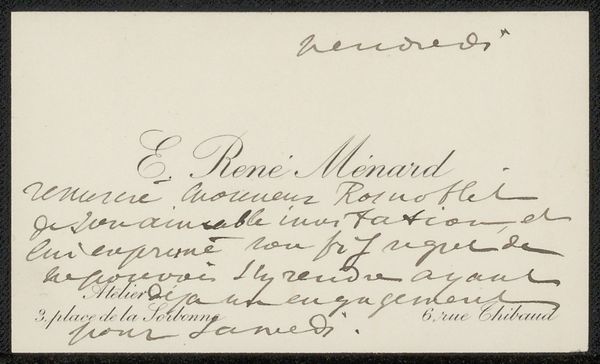 vendredi
E. René Ménard
remercie Monsieur
de son aimable invitation, et
lui exprime son vif regret de
ne pouvoir s'y rendre ayant
Atelier
déjà un engagement
3, place de la Sorbonne
6, rue Chibaud
pour samedi.